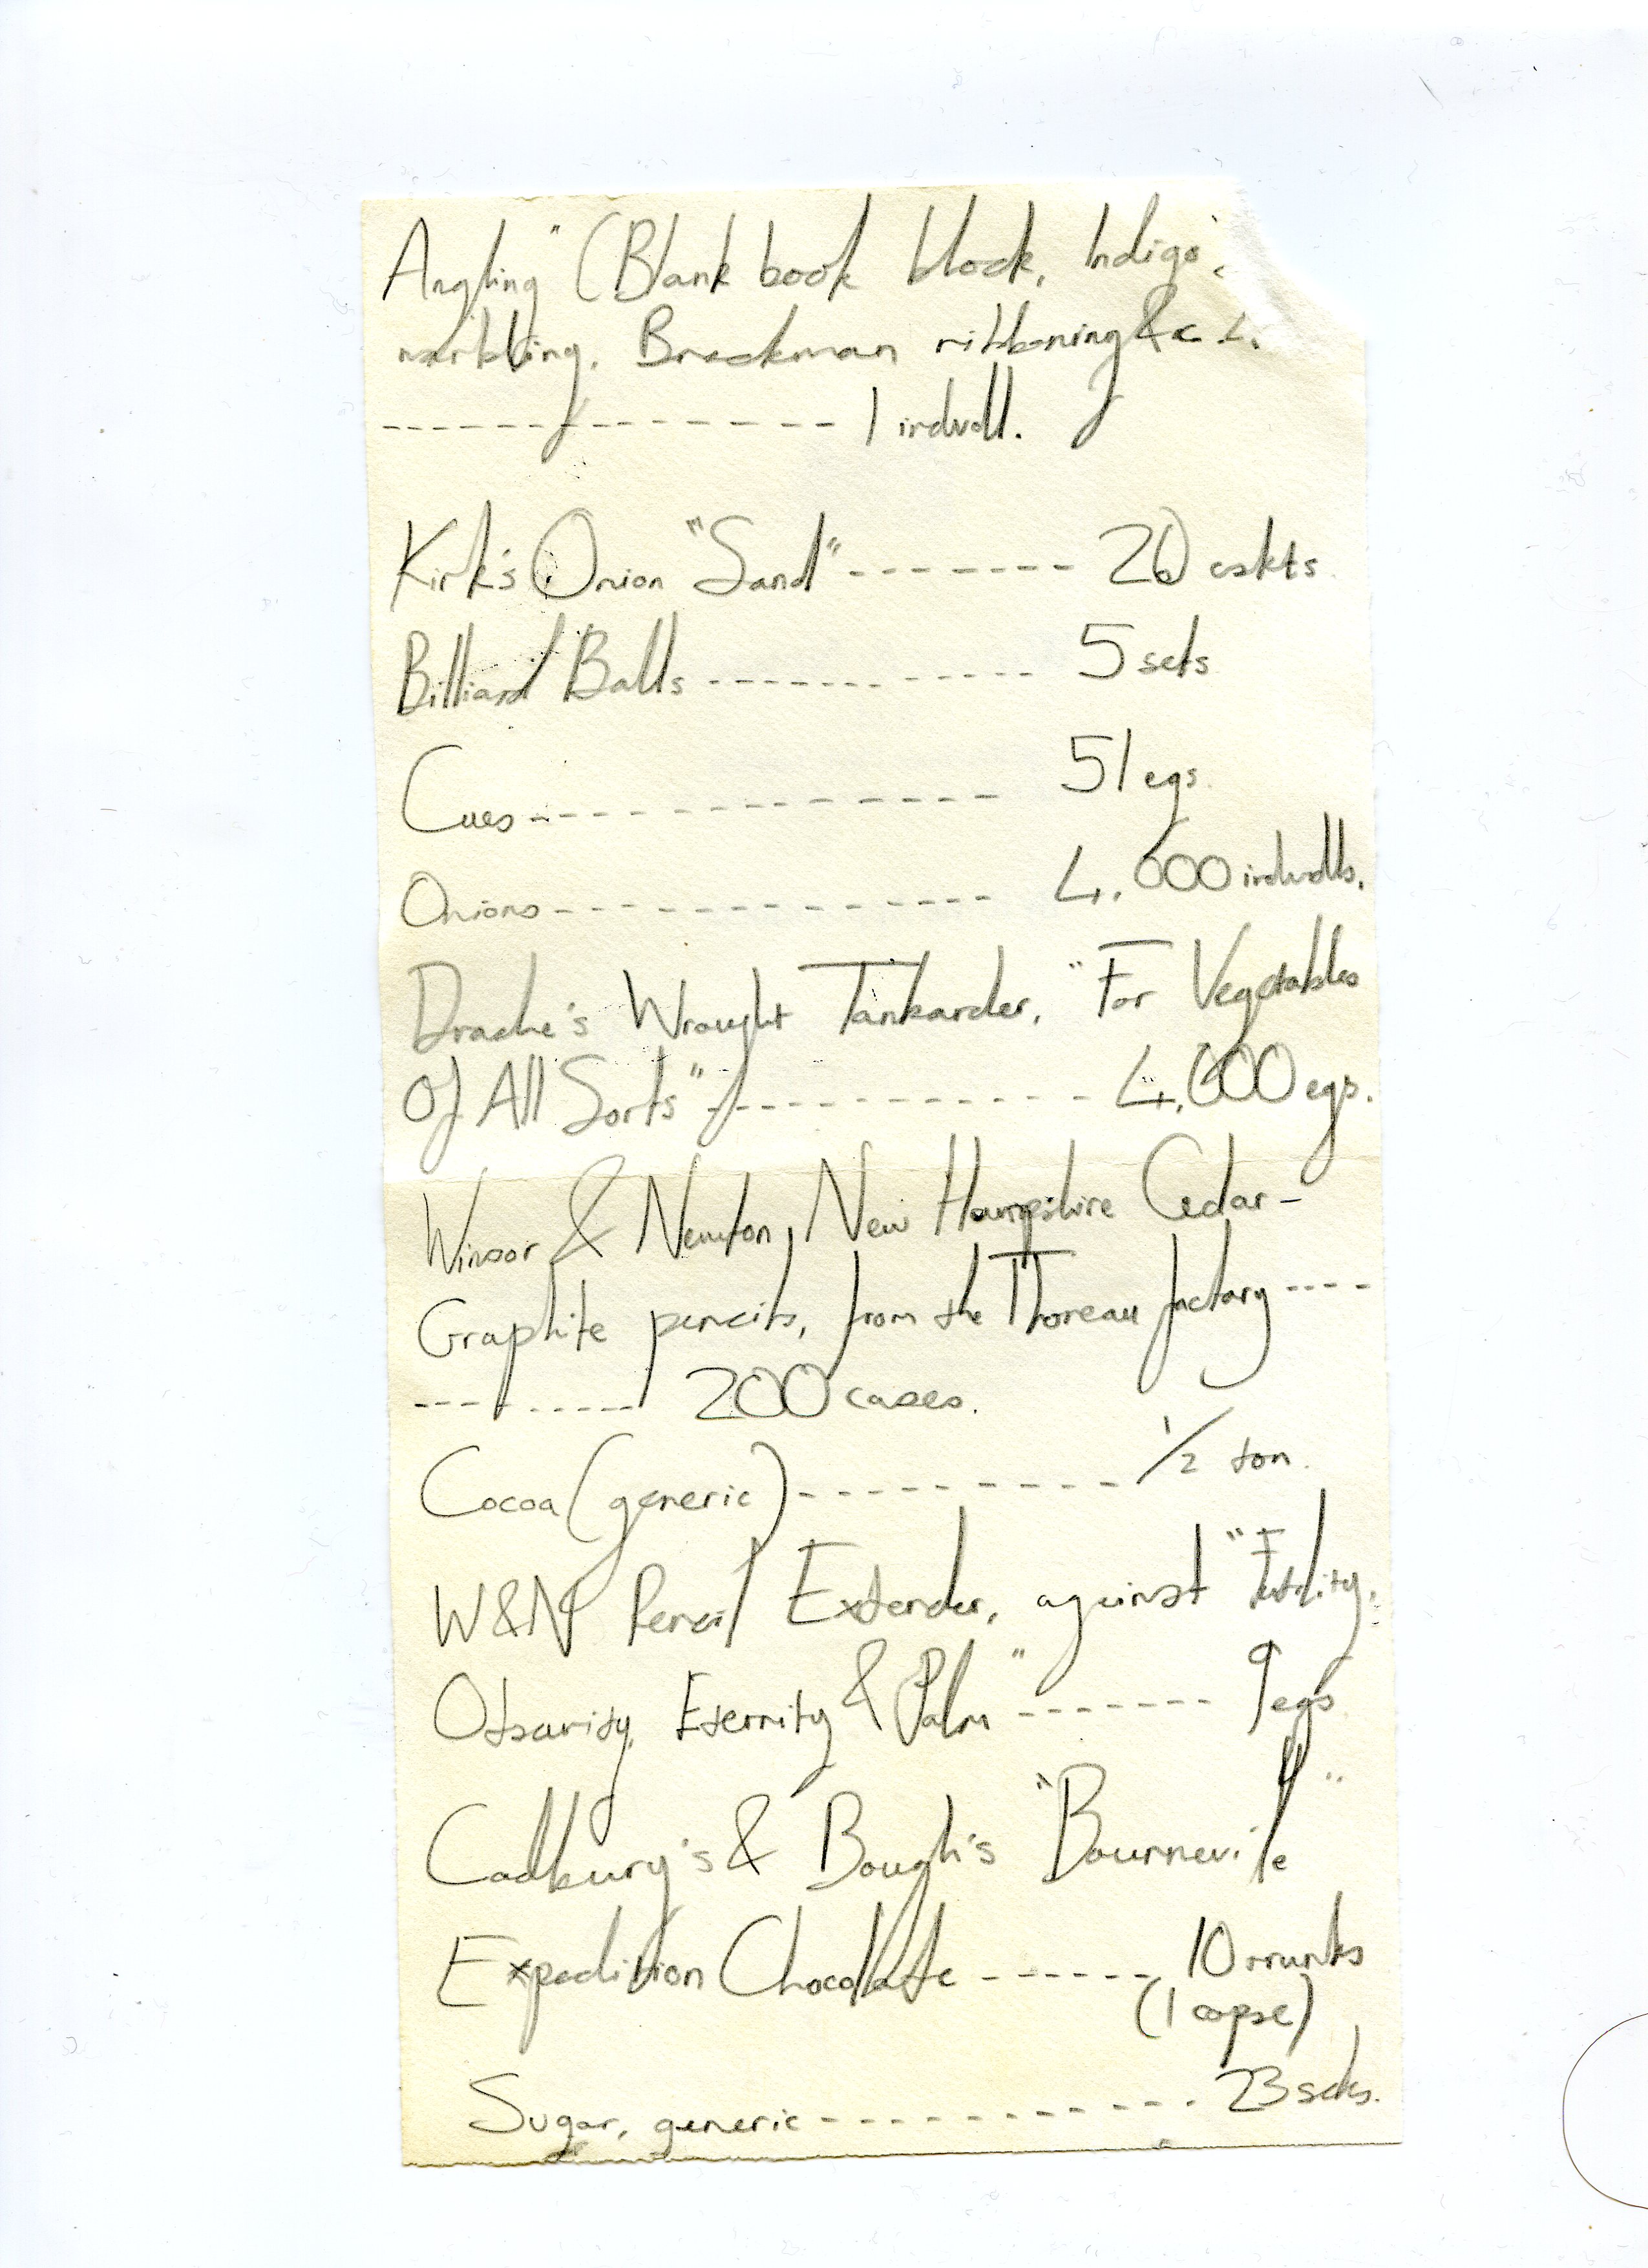 Angling" (Blank book block, Indigo
marbling, Brockman ribboning &c
------------- 1 indvdl.
Kirk's Onion "Sand" ------- 20 cskts.
Billiard Balls ------------ 5 sets
Cues ------------- 51 egs.
Onions -------------- 4,000 indvdls.
Drache's Wrought Tankarder, "For Vegetables
Of All Sorts" ------------ 4,000 egs.
Winsor & Newton, New Hampshire Cedar-
Graphite pencils, from the Thoreau factory ----
--------- 200 cases.
Cocoa (generic) --------- 1/2 ton.
W&N Pencil Extender, against "Futility,
Obscurity, Eternity & Palm" ------- 9 egs
Cadbury's & Bough's "Bourneville"
Expedition Chocolate ------ 10
(1 copse)
Sugar, generic ------------ 23